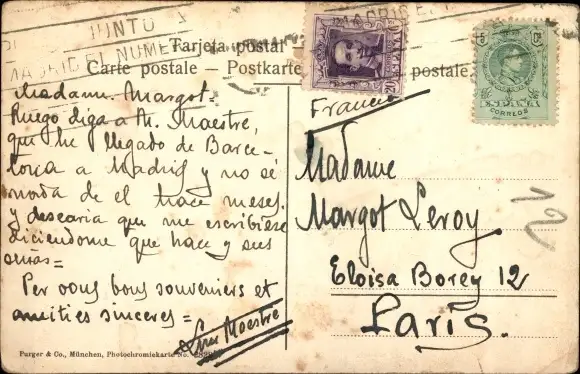 JUNTO
MADRID EL NUME
MADRID EL
Tarjeta postal —
Carte postale — Postkarte postale.
ESPAÑA
20
5 C
ESPAÑA
CORREOS
Francia
Madame. Margot.
Ruego diga a M. Maestre,
que he llegado de Barce-
lona a Madrid y no sé
nada de el hace meses,
y desearia que me escribiese
diciendome que hace y sus
señas =
Per vous bons souvenirs et
amities sinceres =
Maestre
Madame
Margot Leroy
Eloisa Borey 12
Paris.
12
Purger & Co., München, Photochromiekarte No.